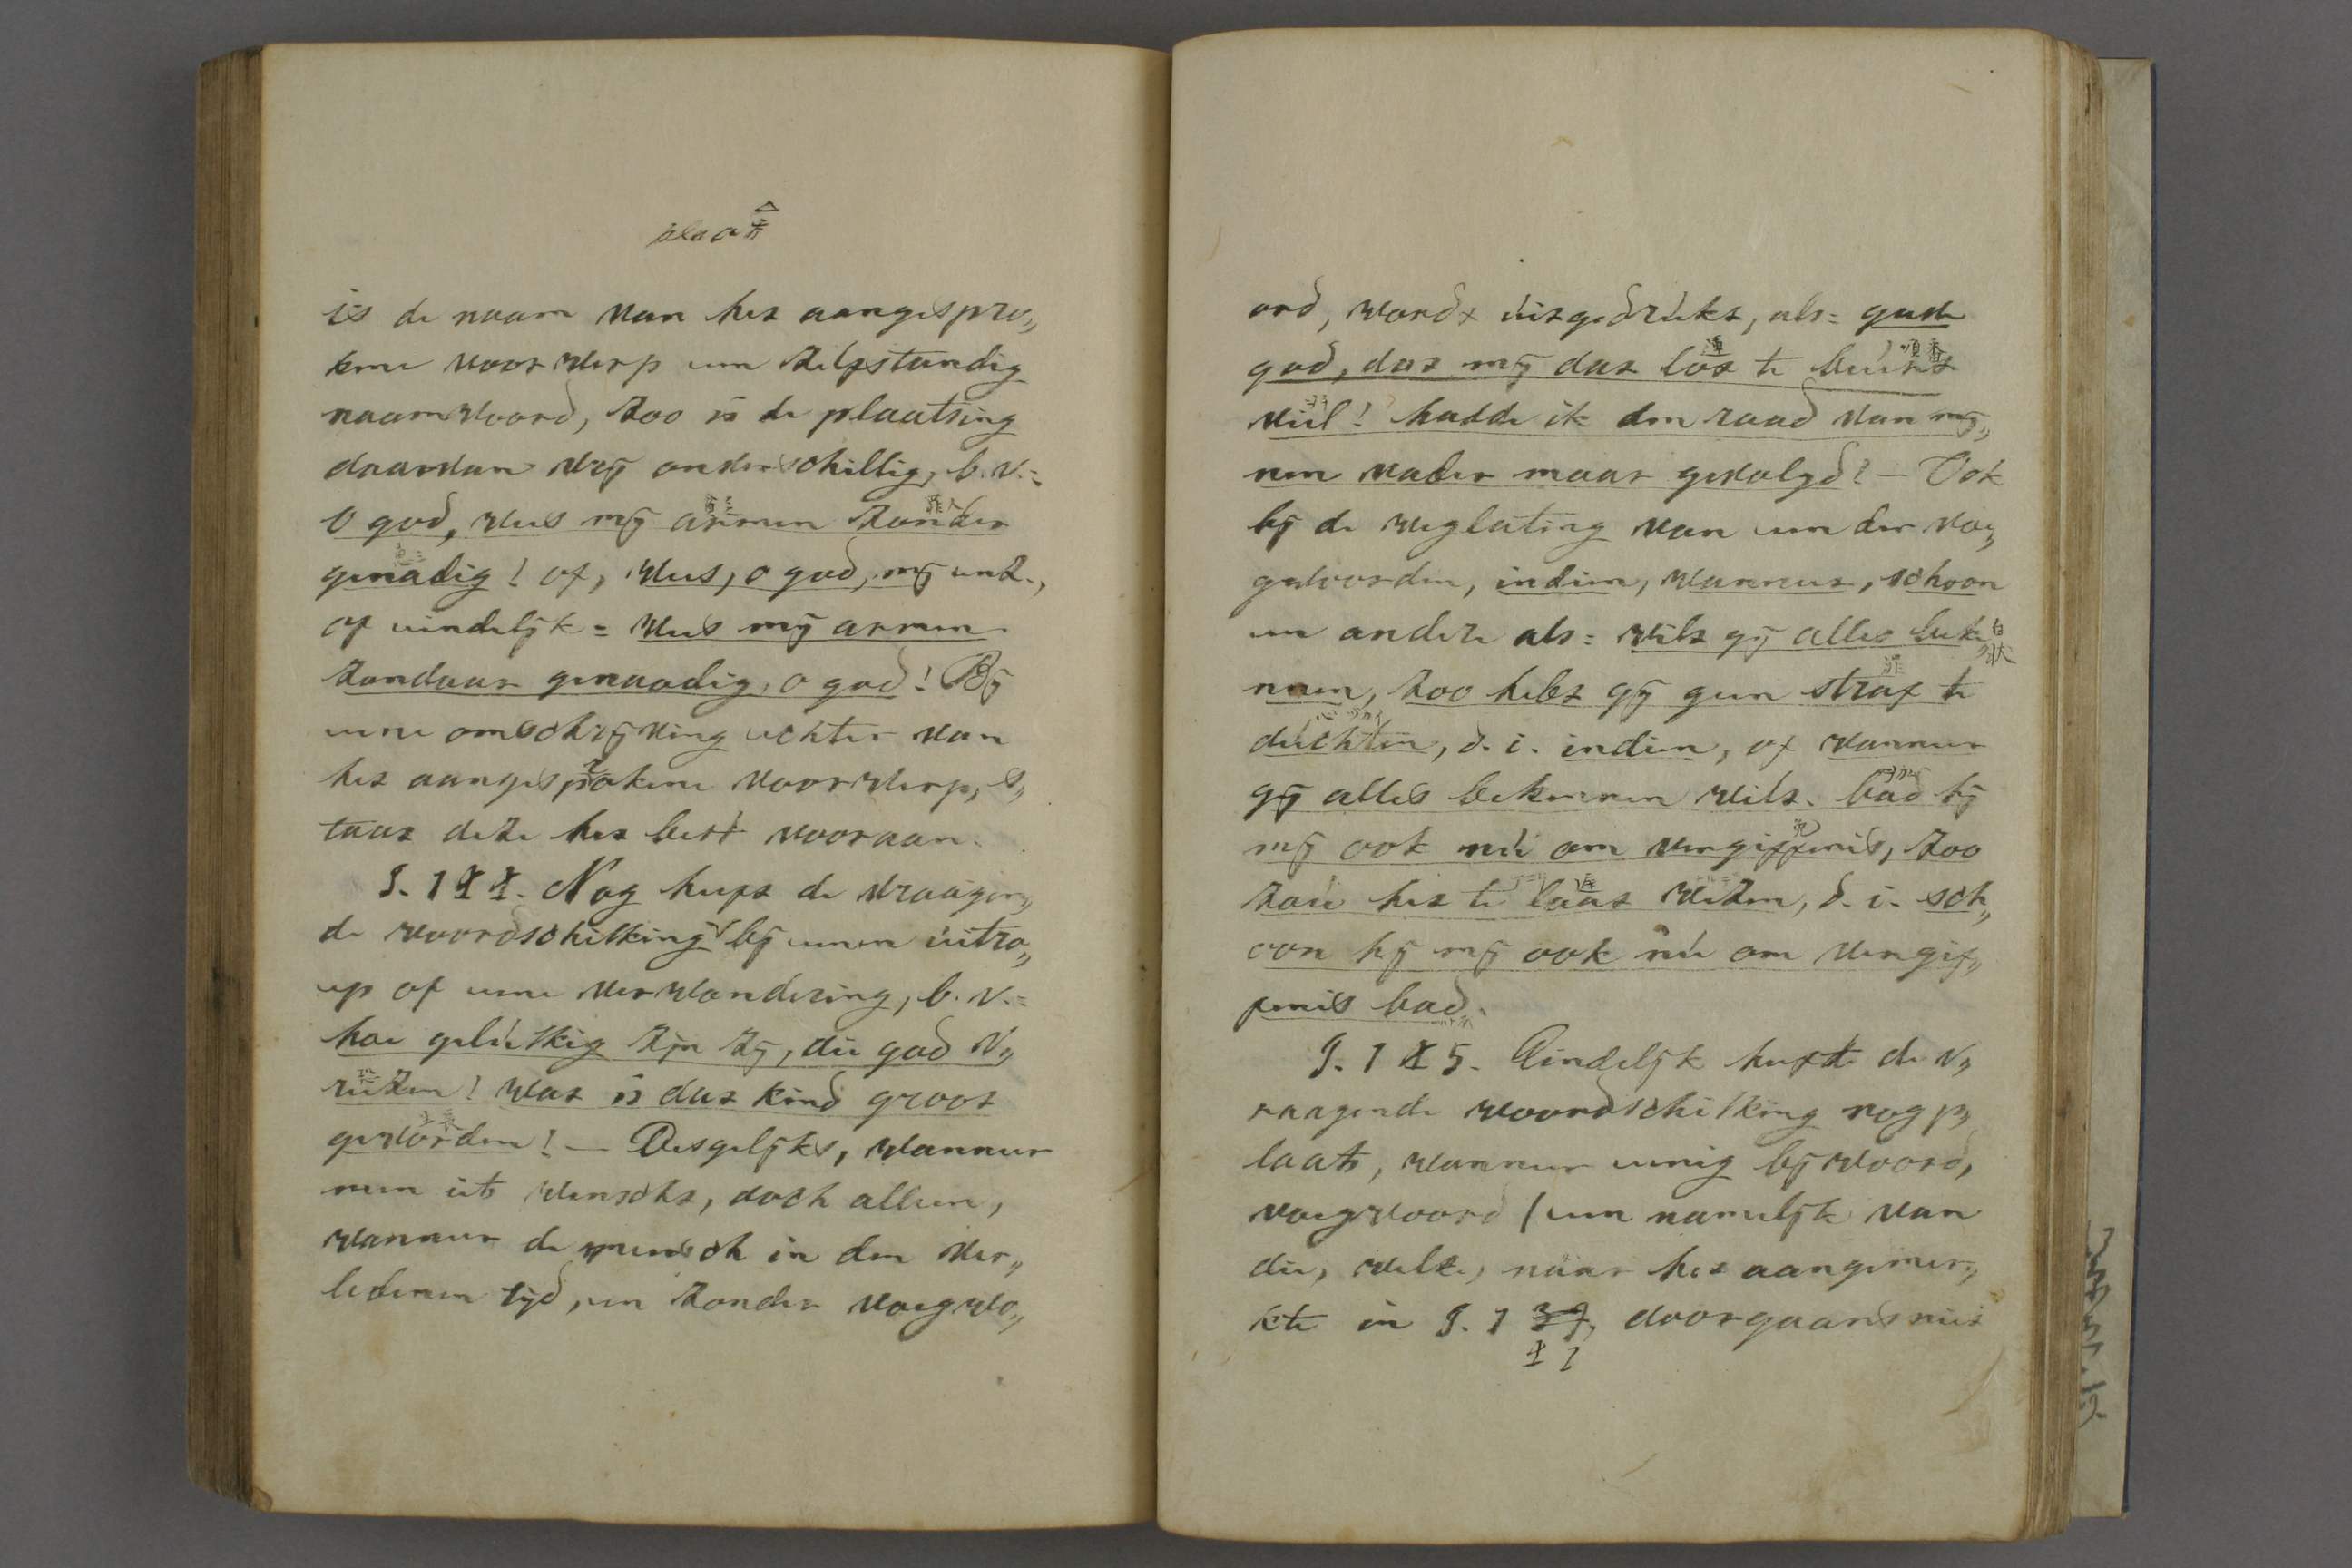 is de naam van het aangespro„
kene voorwerp een zelfstandig
naamwoord, zoo is de plaatsing
daarvan vrij onderschillig, b.v.=
O god, wees mij armen zonder
genadig! of, wees, o god, mij enz.,
of eindelijk = wees mij armen
zondaar genaadig, o god! Bij
eene omschrijving echter van
het aangesprokene voorwerp, s„
taat deze het best vooraan.
§. 144. Nog heeft de vraagen„
de woordschikking bij eenen uitro„
ep of eene verwondering, b.v.=
hoe gelukkig zijn zij, die god v„
reezen! wat is dat kind groot
geworden! — Desgelijks, wanneer
men iets wenscht, doch alleen,
wanneer de wensch in den ver„
ledenen tijd, en zonder voegwo„
ord, wordt uitgedrukt, als= gave
god, dat mij dat lot te beurt
順番
viel! hadde ik den raad van mij„
nen vader maar gevolgd! — Ook
bij de weglating van een der voe„
gwoorden, indien, wanneer, schoon
en andere als= wilt gij alles beke
白狀
nnen, zoo hebt gij geen straf te
罪
duchten, d. i. indien, of wanneer
gij alles bekennen wilt. bad hij
mij ook nu om vergiffenis, zoo
zou het te laat wezen, d. i. sch„
oon hij mij ook nu om vergif„
fenis bad.
§. 145. Eindelijk heeft de v„
raagende woordschikking nog p„
laats, wanneer eenig bijwoord,
voegwoord (een namelijk van
die, welke, naar het aangemer„
kte in §. 1 37, doorgaans niet
41